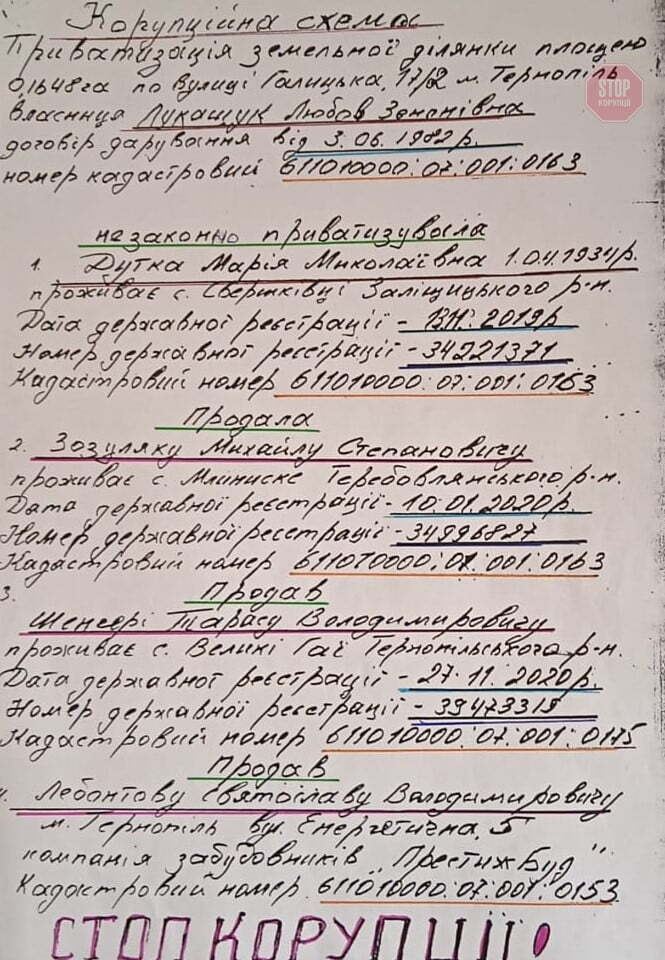 Корупційна схема
Приватизація земельної ділянки площею
0,1648га по вулиці Галицька, 17/2 м. Тернопіль
STOP
КОРУПЦІЇ
власниця Лукащук Любов Зенонівна
договір дарування від 3.06.1982р.
номер кадастровий 611010000:07:001:0163
незаконно приватизувала
1. Дутка Марія Миколаївна 1.04.1934р.
проживає с. Свершківці Заліщицького р-н.
Дата державної реєстрації - 2019р
Номер державної реєстрації - 34221371
Кадастровий номер 611010000:07:001:0163
Продала
2. Зозуляку Михайлу Степановичу
проживає с. Млиниска Теребовлянського р-н.
Дата державної реєстрації - 10.01.2020р.
Номер державної реєстрації - 34996827
Кадастровий номер 611010000:07:001:0163
Продав
3.
Шенгері Тарасу Володимировичу
проживає с. Великі Гаї Тернопільського р-н.
Дата державної реєстрації - 27.11.2020р.
Номер державної реєстрації - 39473319
Кадастровий номер 611010000:07:001:0175
Продав
4. Лебонтову Святославу Володимировичу
м. Тернопіль вул. Енергетична, 5
компанія забудовників "Престиж Буд"
Кадастровий номер 611010000:07:001:0153
СТОП КОРУПЦІЇ!